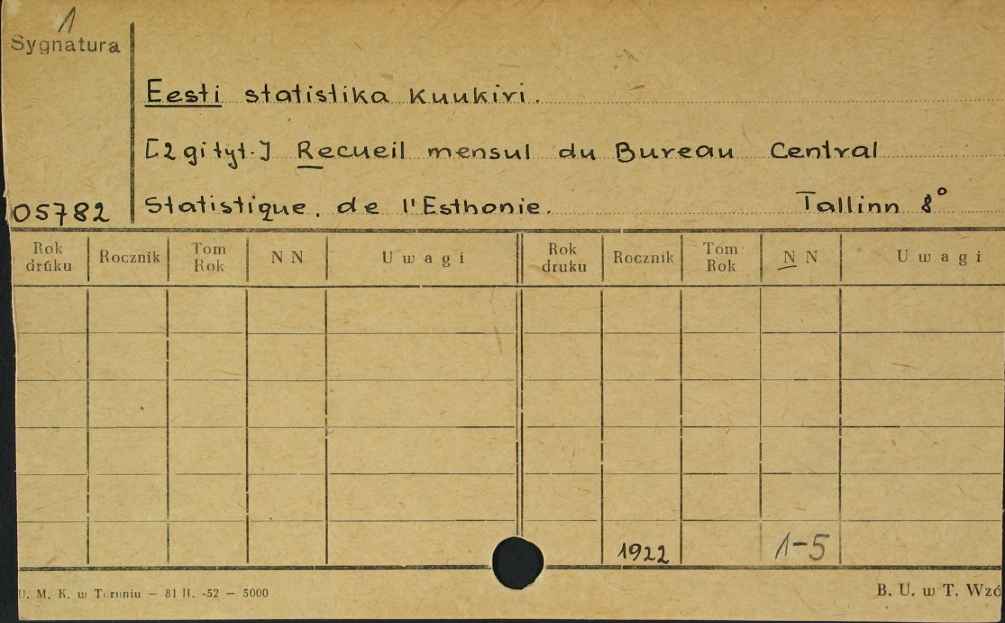 1
Sygnatura
Eesti statistika Kuukiri.
[2 gi tyt.] Recueil mensul du Bureau Central
05782 Statistique, de l'Esthonie. Tallinn 8°
Rok druku Rocznik Tom Rok N N Uwagi Rok druku Rocznik Tom Rok N N Uwagi
1922 1-5
U. M. K. w Toruniu — 81 II. -52 — 5000 B. U. w T. Wzó